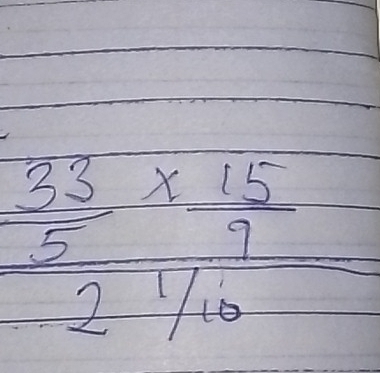 33 × 15
5 9
2 1/10